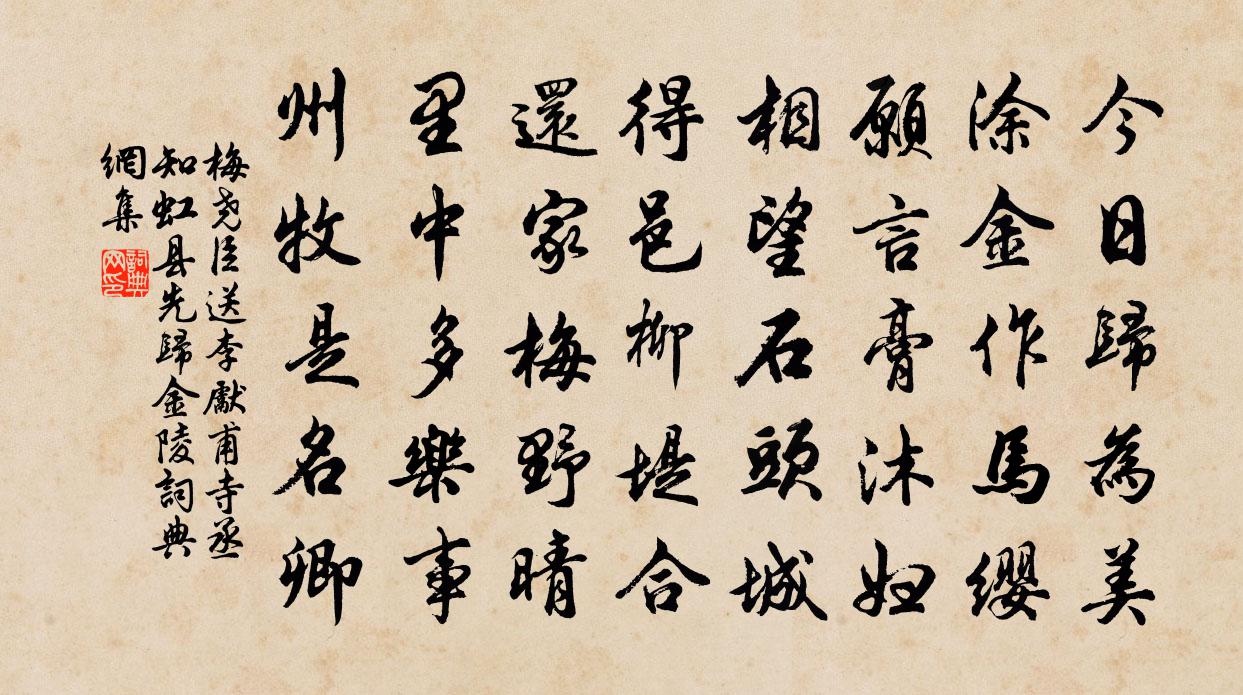 今日歸為美
涂金作馬纓
願言膏沐妞
相望石頭城
得邑柳堤合
還家梅野晴
里中多樂事
州牧是名卿
梅堯臣送李獻甫寺丞
知虹县先歸金陵詞典
網集
詞典網印